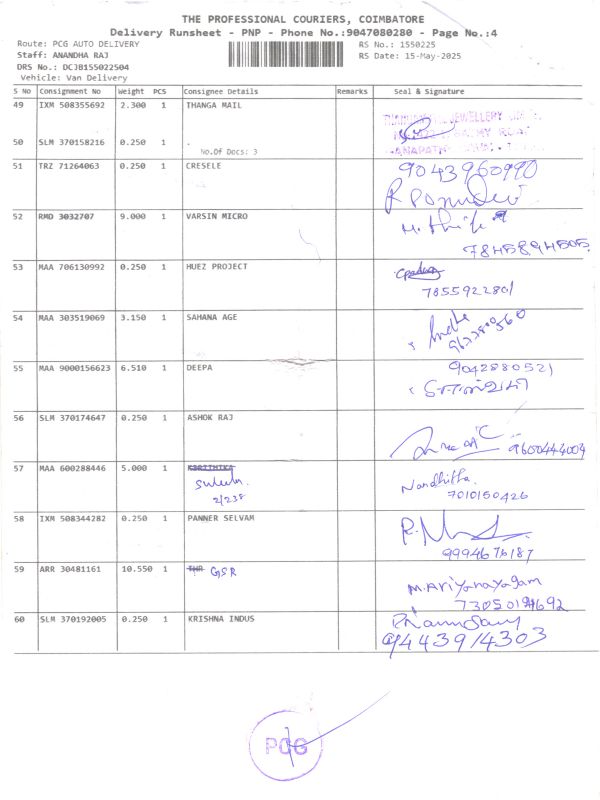 THE PROFESSIONAL COURIERS, COIMBATORE
Delivery Runsheet - PNP - Phone No.:9047080280 - Page No.:4
Route: PCG AUTO DELIVERY
RS No.: 1550225
Staff: ANANDHA RAJ
RS Date: 15-May-2025
DRS No.: DCJB155022504
Vehicle: Van Delivery
S No Consignment No Weight PCS Consignee Details Remarks Seal & Signature
49 IXM 508355692 2.300 1 THANGA MAIL
JEWELLERY
50 SLM 370158216 0.250 1 .
No.Of Docs: 3
51 TRZ 71264063 0.250 1 CRESELE
9043960990
R Ponudevi
52 RMD 3032707 9.000 1 VARSIN MICRO
53 MAA 706130992 0.250 1 HUEZ PROJECT
7855922801
54 MAA 303519069 3.150 1 SAHANA AGE
55 MAA 9000156623 6.510 1 DEEPA
9042880521
56 SLM 370174647 0.250 1 ASHOK RAJ
9600444004
57 MAA 600288446 5.000 1
2/238
Nandhitha
7010150426
58 IXM 508344282 0.250 1 PANNER SELVAM
59 ARR 30481161 10.550 1 THR GSR
M.Ariyanayagam
60 SLM 370192005 0.250 1 KRISHNA INDUS
94443914303
PCG